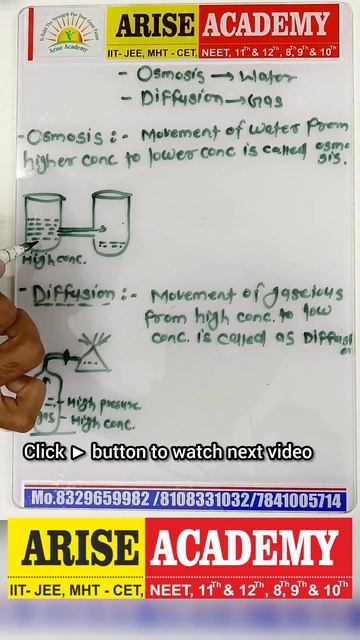 ARISE ACADEMY
IIT- JEE, MHT - CET, NEET, 11th & 12th, 8th, 9th & 10th
Arise Academy
- Osmosis → Water
- Diffusion → Gas
- Osmosis :- Movement of water from
higher conc to lower conc is called osmo
sis.
High conc.
- Diffusion :- Movement of gascious
from high conc. to low
conc. is called as Diffusi
on
- High presure.
gas - High conc.
Click ► button to watch next video
Mo.8329659982 /8108331032/7841005714
ARISE ACADEMY
IIT- JEE, MHT - CET, NEET, 11th & 12th, 8th, 9th & 10th